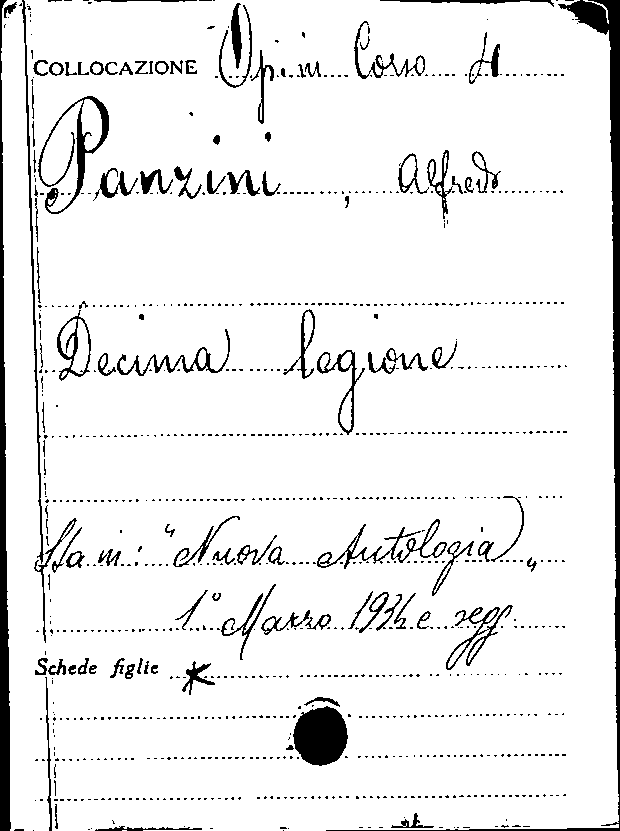 COLLOCAZIONE Op. in Corso 4
Panzini, Alfredo
Decima legione
Sta in: "Nuova Antologia"
1° Marzo 1934 e segg.
Schede figlie